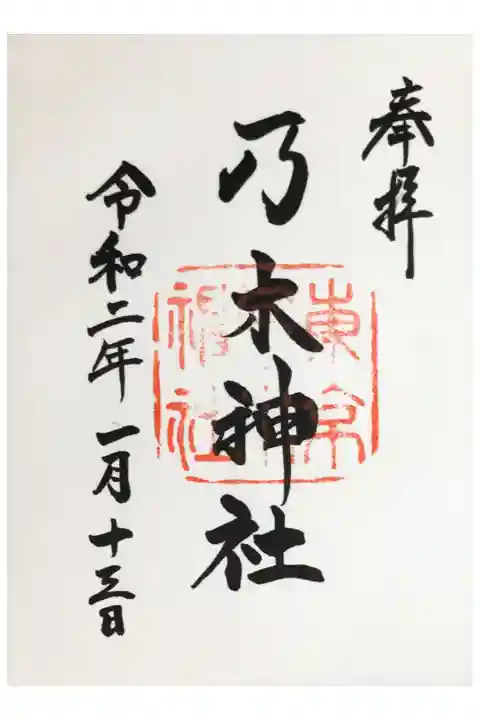 奉拝
乃木神社
東京
神社
令和二年一月十三日